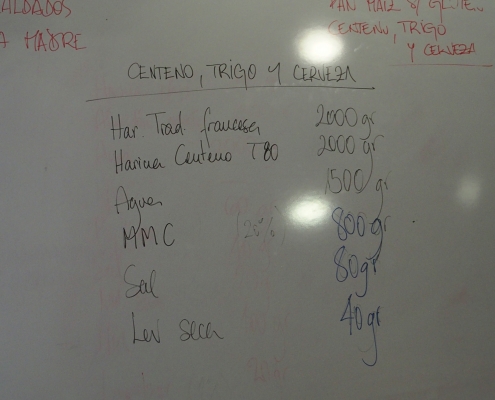 ALDADOS
A MADRE
PAN MAIZ S/ GLUTEN
CENTENO, TRIGO
Y CERVEZA
CENTENO, TRIGO Y CERVEZA
Har. Trad. francesa 2000 gr
Harina Centeno T80 2000 gr
Agua 1500 gr
MMC (20%) 800 gr
Sal 80 gr
Lev seca 40 gr